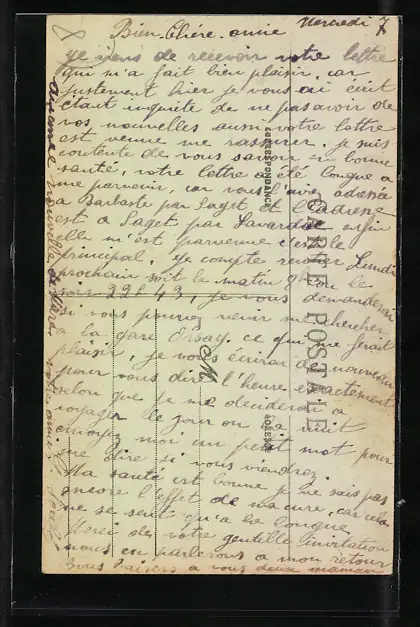 Mercredi 7
Bien Chère amie
je viens de recevoir votre lettre
qui m'a fait bien plaisir, car
justement hier je vous ai écrit
étant inquiète de ne pas avoir de
vos nouvelles aussi votre lettre
est venue me rassurer, je suis
contente de vous savoir en bonne
santé, votre lettre a été longue a
me parvenir, car vous l'avez adressée
a Barbaste par Saget et l'adresse
est a Saget par Lavardac enfin
elle m'est parvenue c'est le
principal, je compte rentrer Lundi
prochain soit le matin 8h ou le
soir 22h 43, je vous demanderai
si vous pouvez venir me chercher
a la gare Orsay, ce qui me ferait
plaisir, je vous écrirai de nouveau
pour vous dire l'heure exactement
selon que je me déciderai a
voyager le jour ou la nuit
envoyez moi un petit mot pour
me dire si vous viendrez.
Ma santé est bonne je ne sais pas
encore l'effet de ma cure, car cela
ne se sent qu'a la longue
Merci de votre gentille invitation
nous en parlerons a mon retour
Bons baisers a vous deux maman
nouvelle de
votre amie
CARTE POSTALE
CORRESPONDANCE
ADRESSE
M